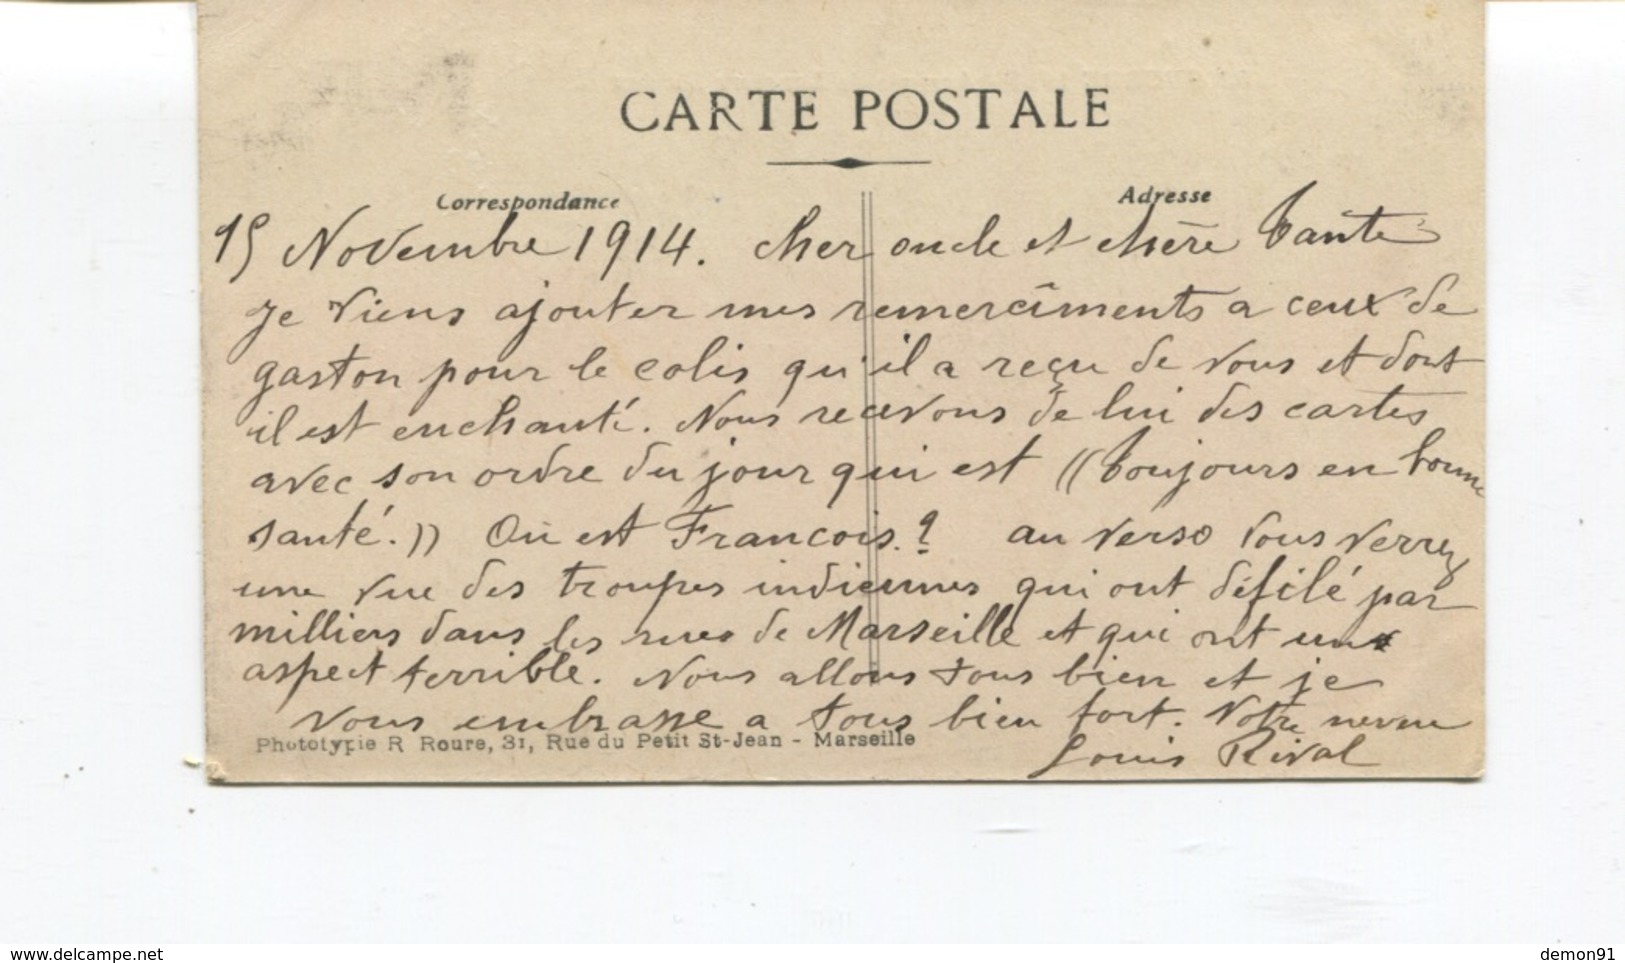 CARTE POSTALE
Correspondance
Adresse
15 Novembre 1914. Cher oncle et chère Tante
Je viens ajouter mes remercîments a ceux de
gaston pour le colis qu'il a reçu de vous et dont
il est enchanté. Nous recevons de lui des cartes
avec son ordre du jour qui est ((Toujours en bonne
santé.)) Où est Francois.? au verso vous verrez
une vue des troupes indiennes qui ont défilé par
milliers dans les rues de Marseille et qui ont un
aspect terrible. Nous allons tous bien et je
vous embrasse a tous bien fort. Votre neveu
Louis Rival
Phototypie R Roure, 31, Rue du Petit St-Jean - Marseille
https://www.delcampe.net
demon91